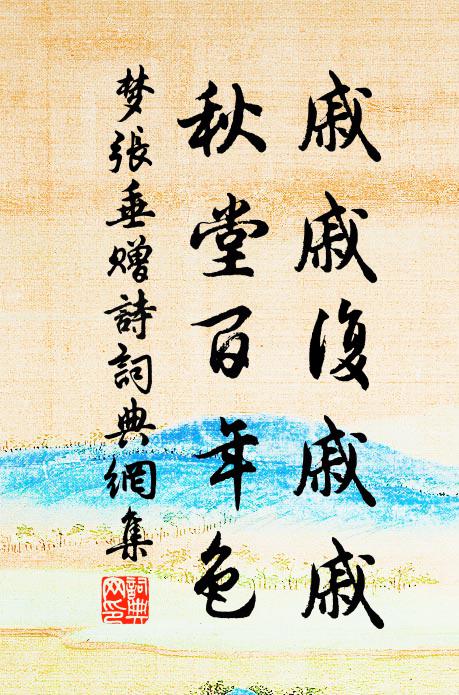 戚戚復戚戚
秋堂百年色
梦張垂贈詩詞典網集
詞典